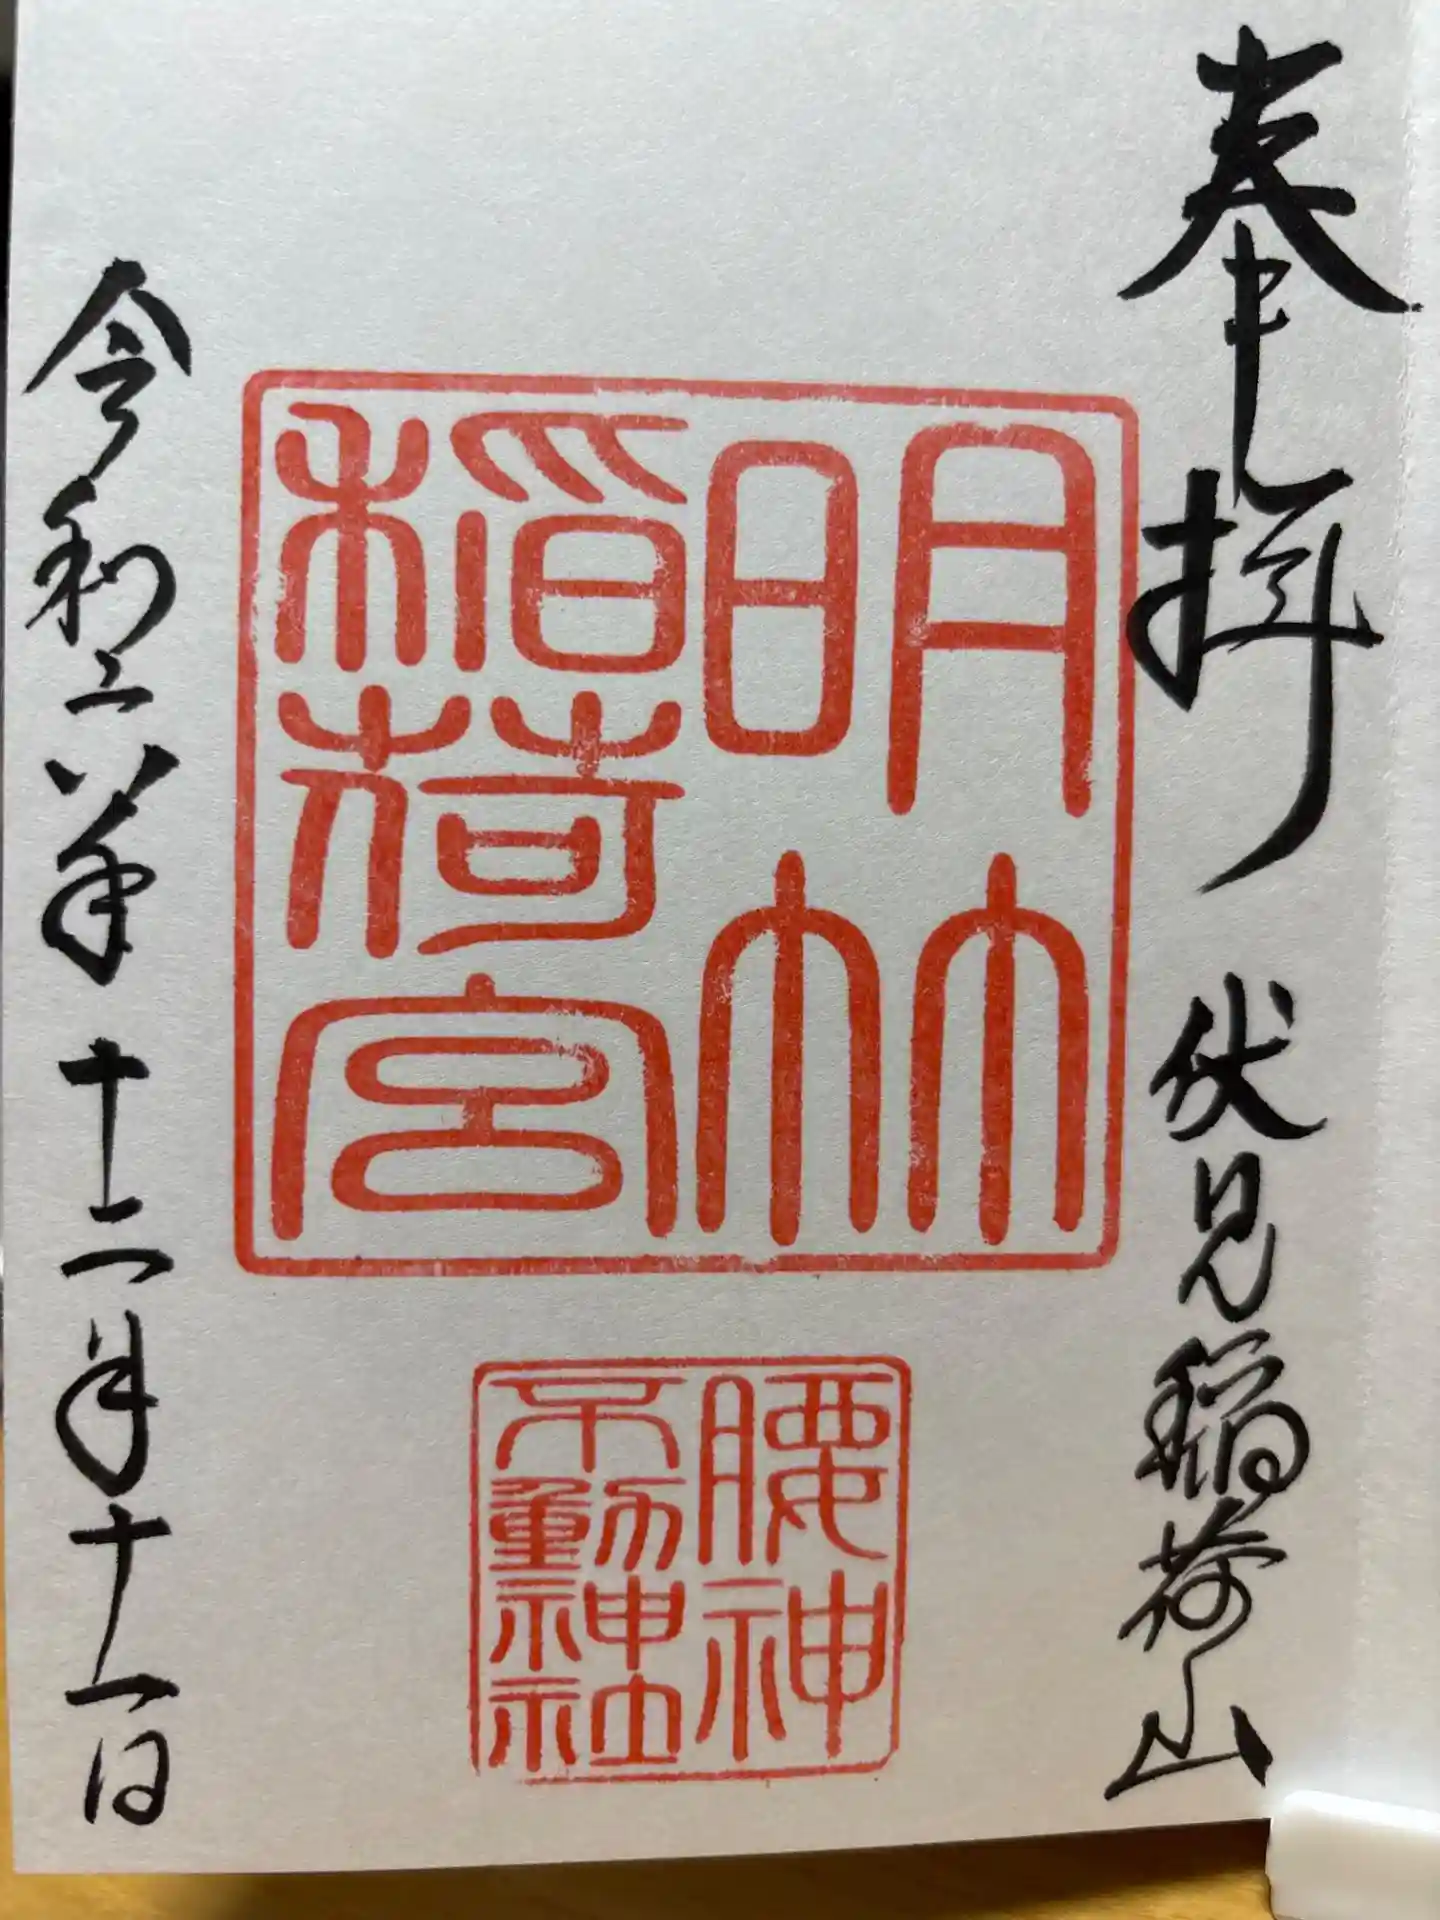 奉拝 伏見稲荷山
明竹
稲荷宮
腰神
不動神社
令和六年十二月十一日